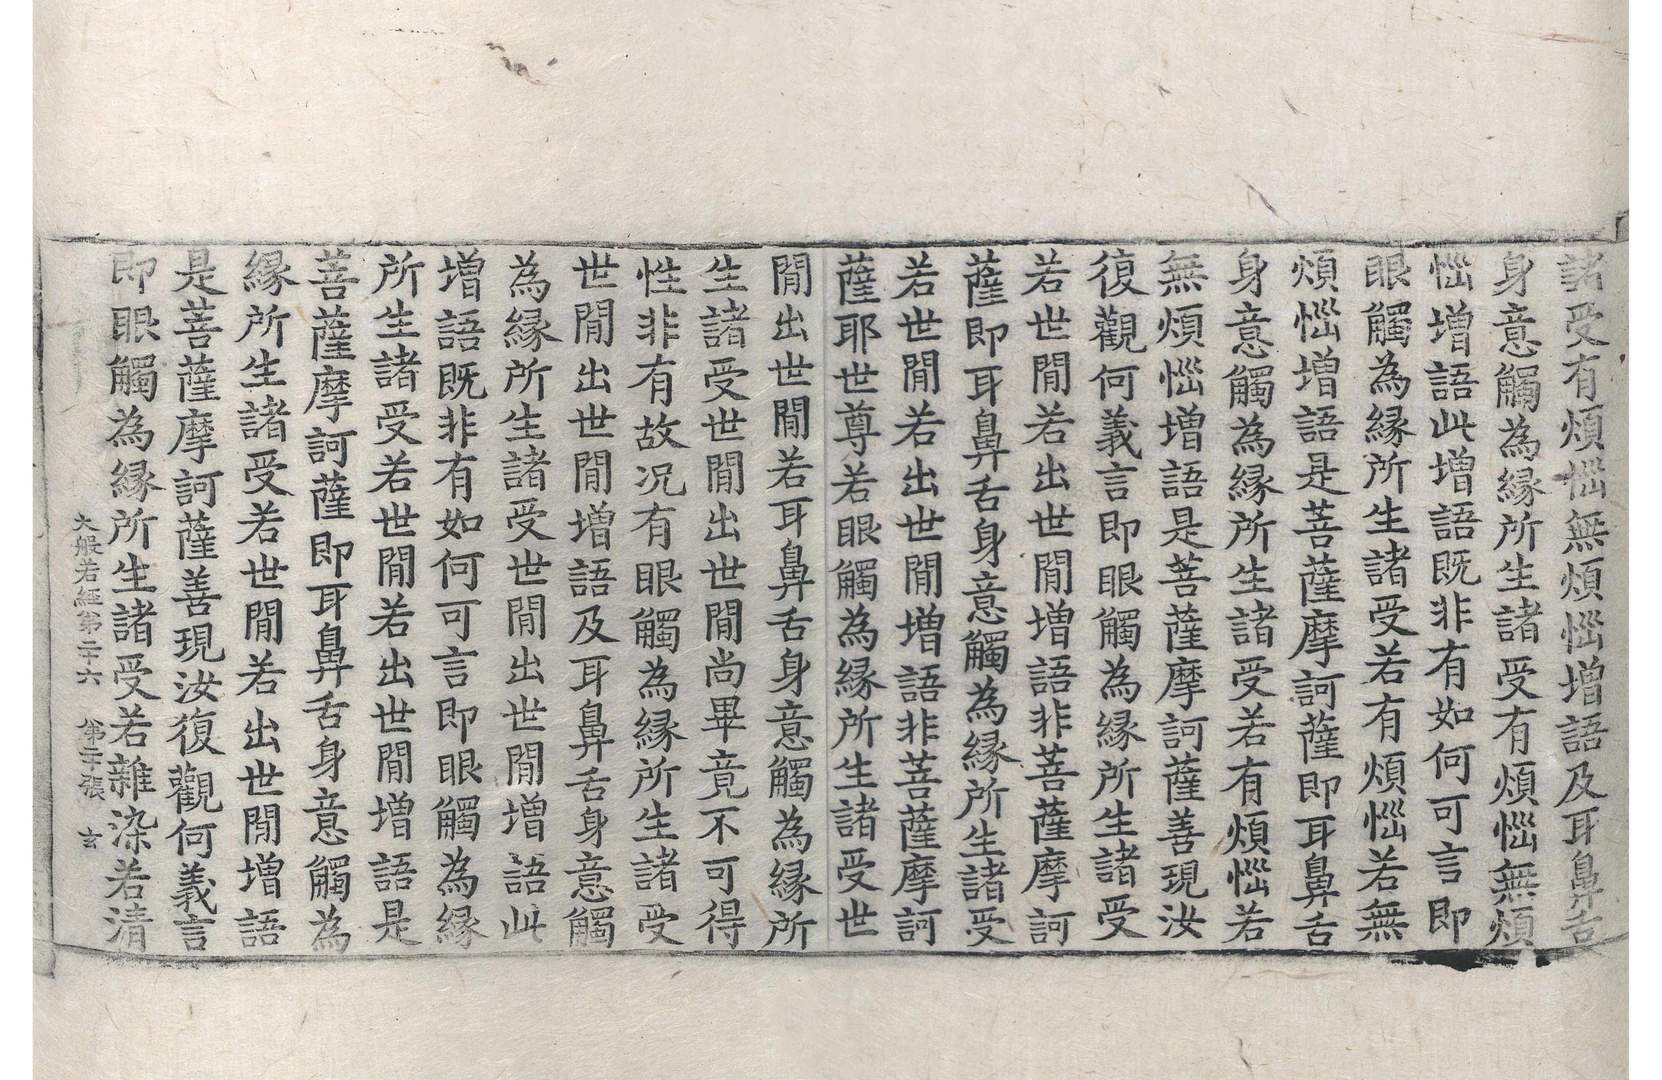 諸受有煩惱無煩惱增語及耳鼻舌
身意觸為縁所生諸受有煩惱無煩
惱增語此增語既非有如何可言即
眼觸為縁所生諸受若有煩惱若無
煩惱增語是菩薩摩訶薩即耳鼻舌
身意觸為縁所生諸受若有煩惱若
無煩惱增語是菩薩摩訶薩善現汝
復觀何義言即眼觸為縁所生諸受
若世閒若出世閒增語非菩薩摩訶
薩即耳鼻舌身意觸為縁所生諸受
若世閒若出世閒增語非菩薩摩訶
薩耶世尊若眼觸為縁所生諸受世
閒出世閒若耳鼻舌身意觸為縁所
生諸受世閒出世閒尚畢竟不可得
性非有故况有眼觸為縁所生諸受
世閒出世閒增語及耳鼻舌身意觸
為縁所生諸受世閒出世閒增語此
增語既非有如何可言即眼觸為縁
所生諸受若世閒若出世閒增語是
菩薩摩訶薩即耳鼻舌身意觸為
縁所生諸受若世閒若出世閒增語
是菩薩摩訶薩善現汝復觀何義言
即眼觸為縁所生諸受若雜染若清
大般若經第二十六 第二十張 玄